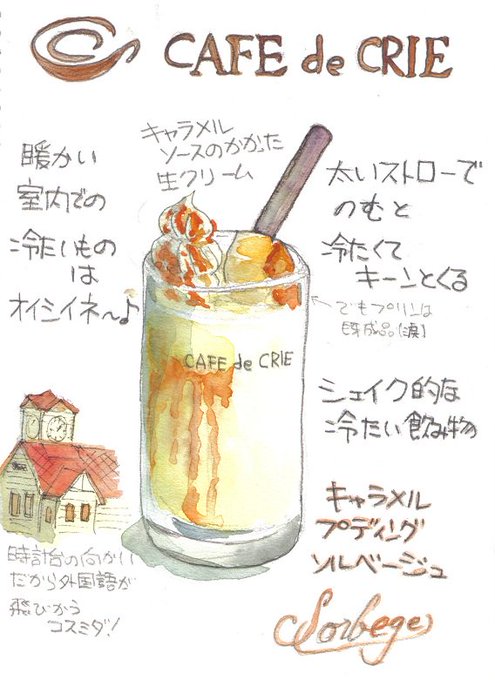 CAFE de CRIE
キャラメル
ソースのかかった
生クリーム
暖かい
室内での
冷たいもの
は
オイシイネ〜♪
太いストローで
のむと
冷たくて
キーンとくる
でもプリンは
既成品(涙)
CAFE de CRIE
シェイク的な
冷たい飲み物
キャラメル
プディング
ソルベージュ
Sorbege
時計台の向かい
だから外国語が
飛びかう
コスミダ!